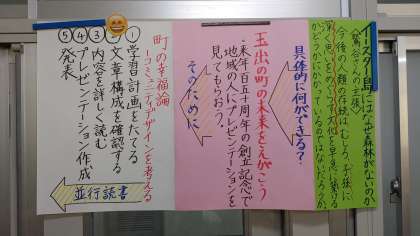 イースター島にはなぜ森林がないのか
(鷲谷さんの主張)
今後の人類の存続は、むしろ、子孫に
深く思いをめぐらす文化を早急に築ける
かどうかにかかっているのではないだろうか
具体的に何ができる?
玉出の町の未来をえがこう
・来年百五十周年の創立記念で
地域の人にプレゼンテーションを
見てもらおう。
そのために
町の幸福論
ーコミュニティデザインを考える
①学習計画をたてる
②文章構成を確認する
③内容を詳しく読む
④プレゼンテーション作成
⑤発表
並行読書